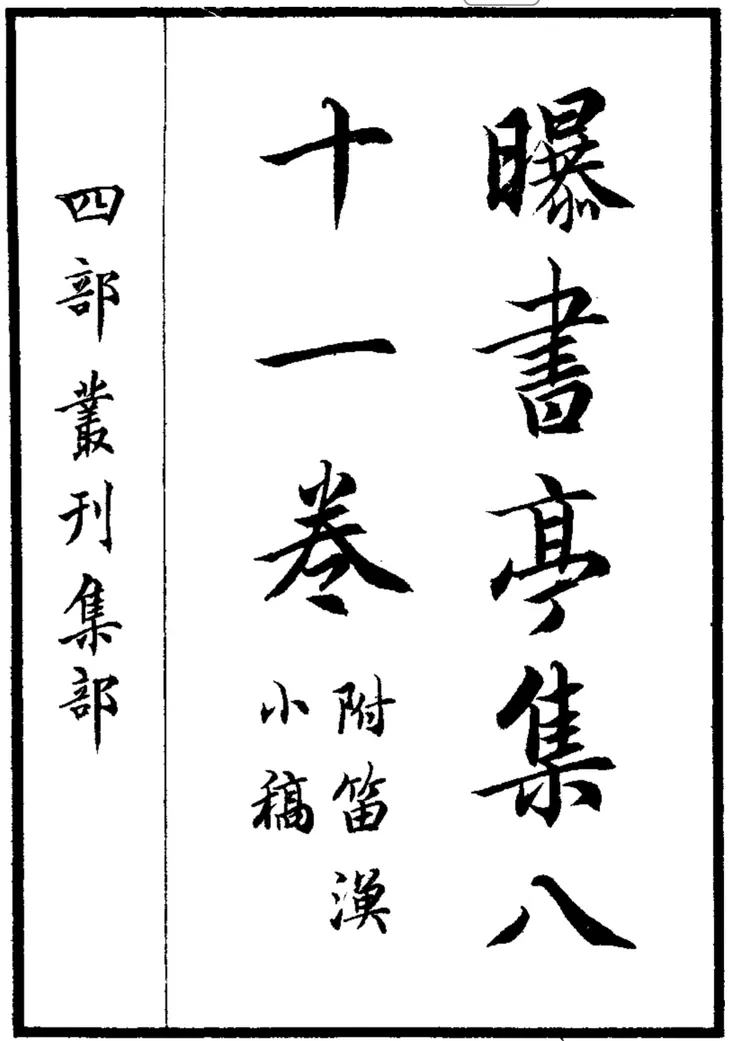 曝書亭集八
十一卷
附笛漁
小稿
四部叢刊集部